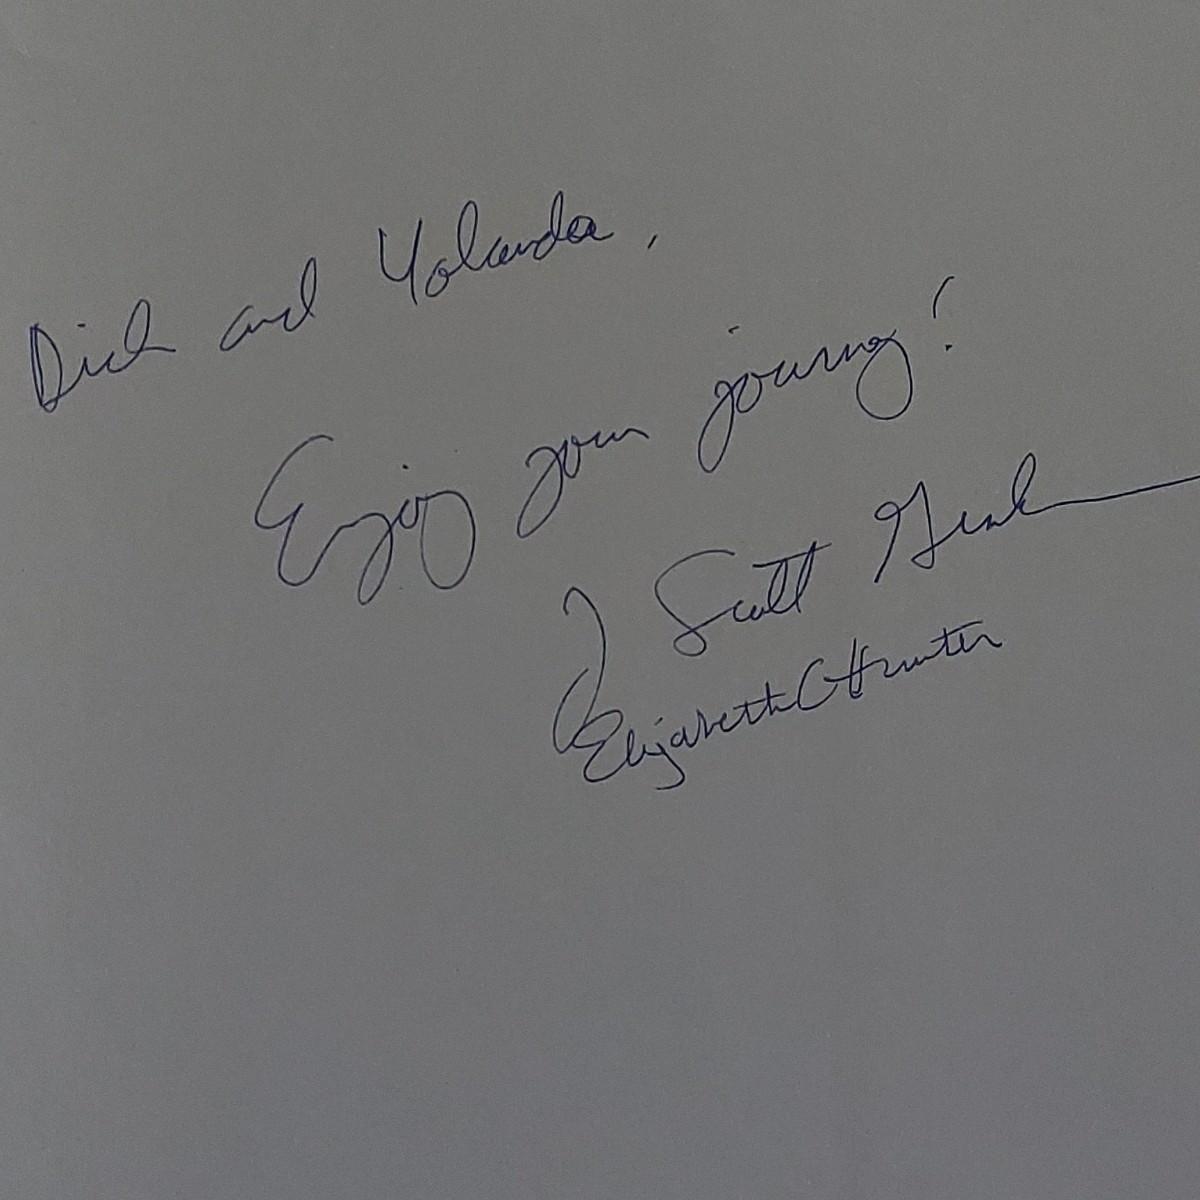 Dick and Yolanda,
Enjoy your journey!
J Scott
Elizabeth C Hunter